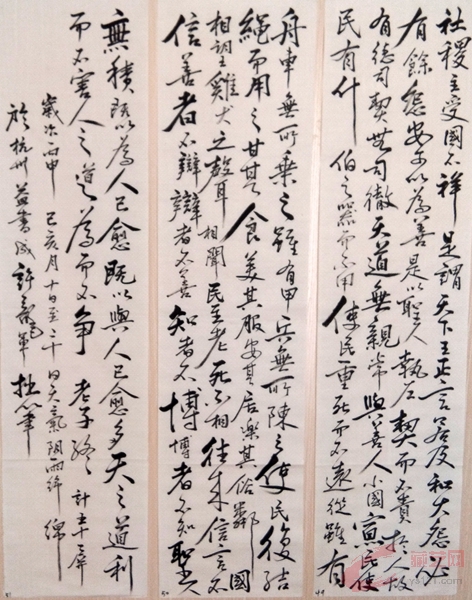 社稷主受國不祥是謂天下王正言若反和大怨必
有餘怨安可以為善是以聖人執左契而不責於人故
有德司契無司徹天道無親常與善人小國寡民使
民有什伯之器而不用使民重死而不遠徙雖有
49
舟車無所乘之雖有甲兵無所陳之使民復結
繩而用之甘其食美其服安其居樂其俗鄰國
相望雞犬之聲相聞民至老死不相往來信言不
信善者不辯辯者不善知者不博博者不知聖人
50
無積既以為人已愈既以與人已愈多天之道利
而不害人之道為而不爭 老子終 計五十三屏
歲次丙申己亥月十日至二十日天氣陰雨綿
於杭州 書成許